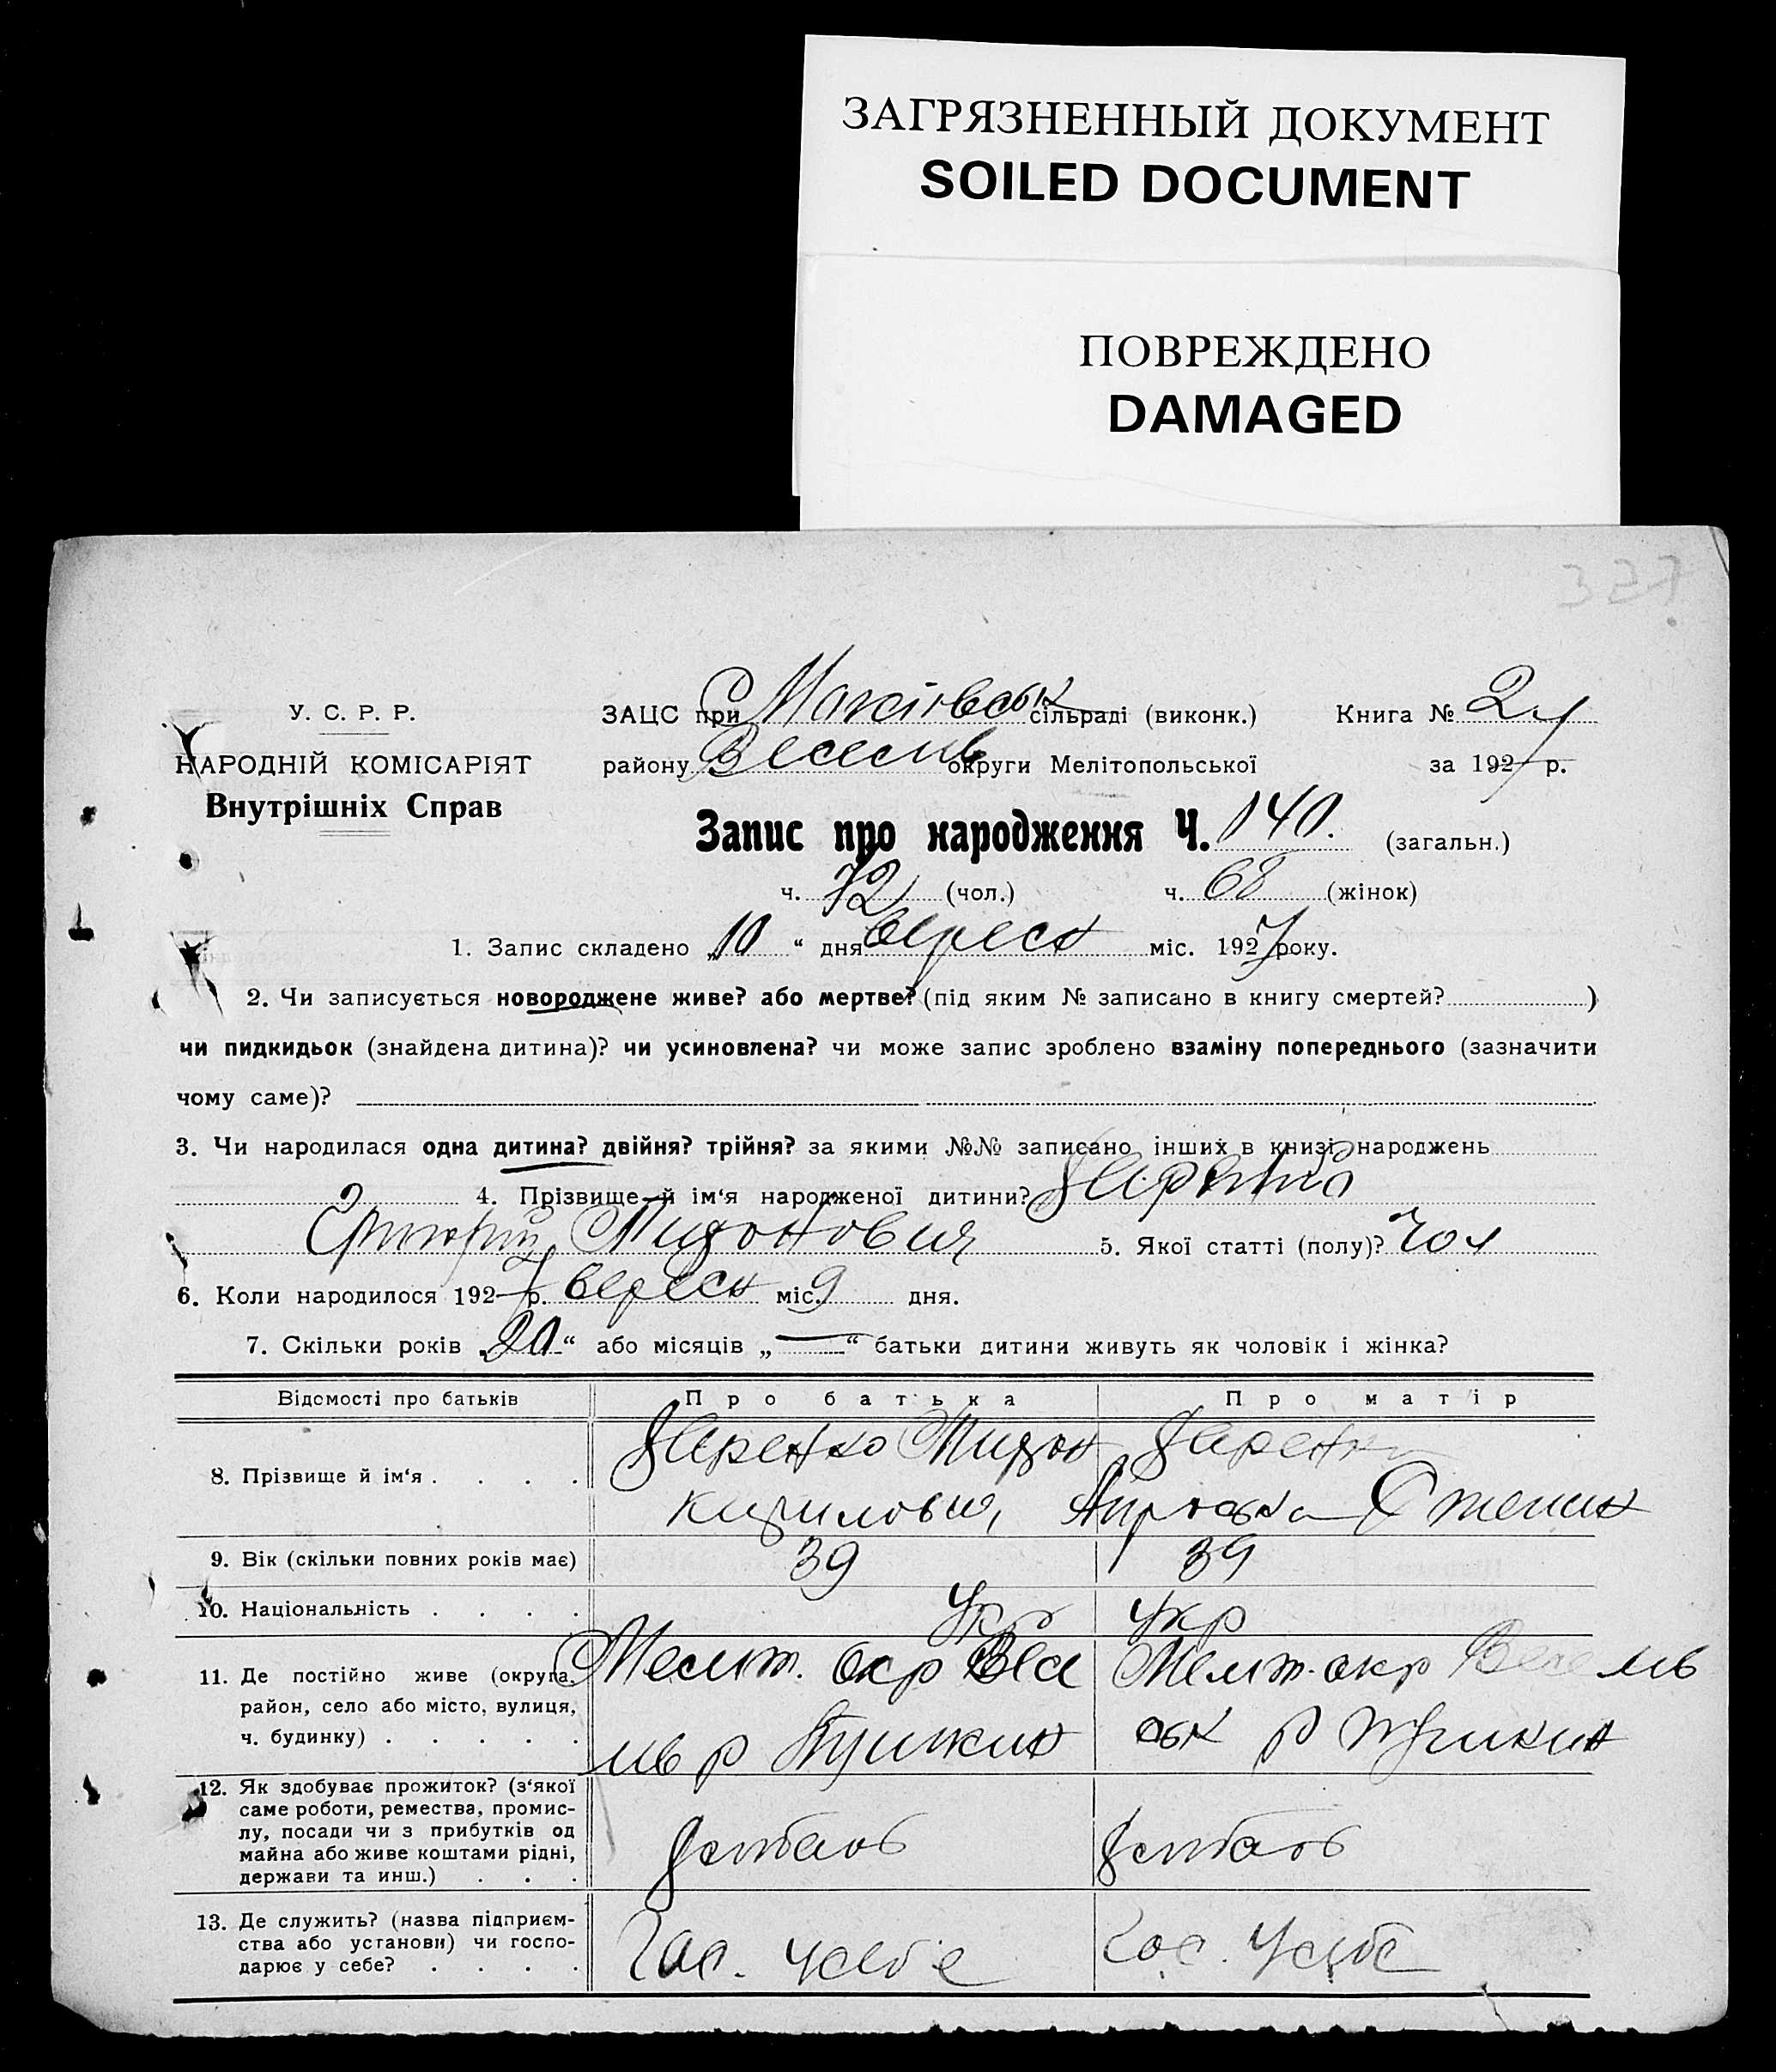 ЗАГРЯЗНЕННЫЙ ДОКУМЕНТ
SOILED DOCUMENT
ПОВРЕЖДЕНО
DAMAGED
327
У. С. Р. Р.
НАРОДНІЙ КОМІСАРІЯТ
Внутрішніх Справ
ЗАЦС при сільраді (виконк.) Книга № 2
району Весель округи Мелітопольської за 1927 р.
Запис про народження Ч. 140. (загальн.)
ч. 72 (чол.) ч. 68 (жінок)
1. Запис складено „10“ дня вересн міс. 1927 року.
2. Чи записується новороджене живе? або мертве? (під яким № записано в книгу смертей? )
чи пидкидьок (знайдена дитина)? чи усиновлена? чи може запис зроблено взаміну попереднього (зазначити
чому саме)?
3. Чи народилася одна дитина? двійня? трійня? за якими №№ записано інших в книзі народжень
4. Прізвище й ім‘я народженої дитини?
Григорий Миронович 5. Якої статті (полу)? чол
6. Коли народилося 1927 р. вересн міс. 9 дня.
7. Скільки років „20“ або місяців „—“ батьки дитини живуть як чоловік і жінка?
Відомості про батьків Про батька Про матір
8. Прізвище й ім‘я . . . . Мирон
Кирилович, Степан
9. Вік (скільки повних років має) 39 39
10. Національність . . . . Укр Укр
11. Де постійно живе (округа, Мелит. окр Весе Мелит. окр Весель
район, село або місто, вулиця, ль р Пушкин ськ р Пушкин
ч. будинку) . . . . .
12. Як здобуває прожиток? (з‘якої
саме роботи, ремества, промис-
лу, посади чи з прибутків од
майна або живе коштами рідні,
держави та инш.) . . .
13. Де служить? (назва підприєм-
ства або установи) чи госпо-
дарює у себе? . . . . Гос. у себе Гос. у себе